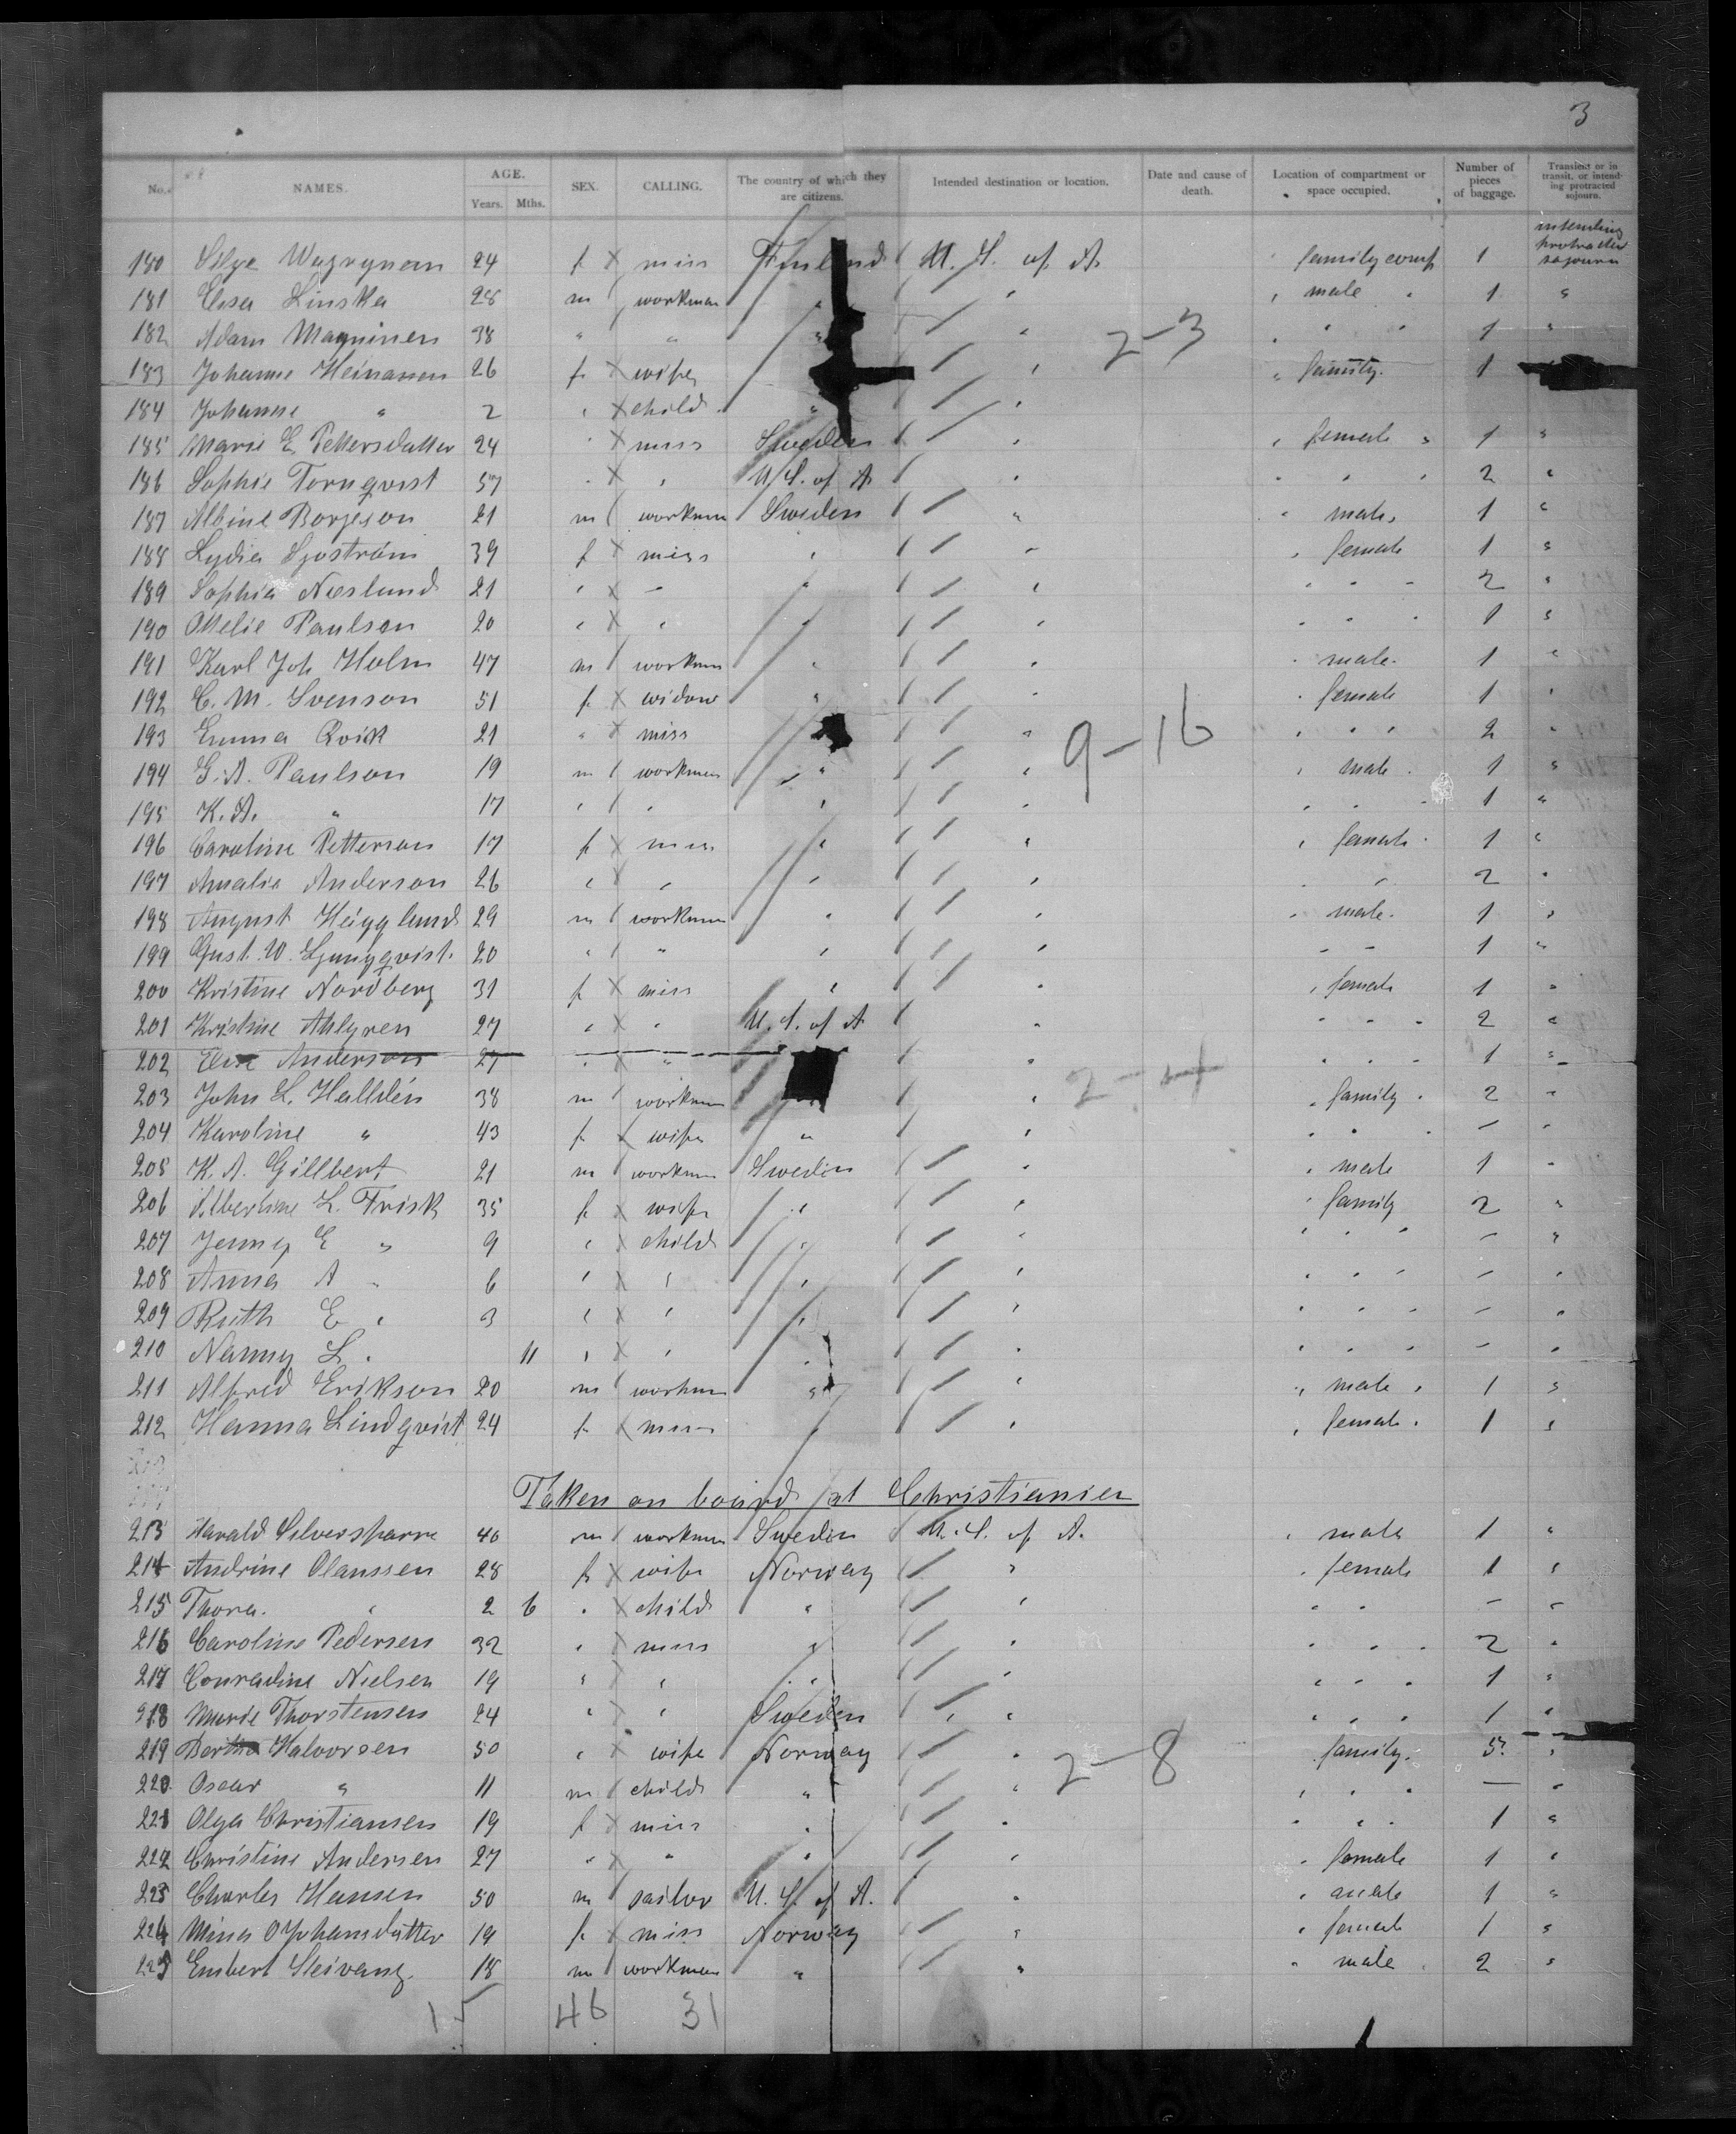 3
No. NAMES. AGE. Years. Mths. SEX. CALLING. The country of which they are citizens. Intended destination or location. Date and cause of death. Location of compartment or space occupied. Number of pieces of baggage. Transient or in transit, or intending protracted sojourn.
180 24 f x miss Finland U. S. of A. family comp 1 intending protracted sojourn
181 Linska 28 m workman " " male " 1 "
182 Adam Manninen 38 " " " " " " 1 "
2-3
183 Johanne Heinanen 26 f x wife " " " family. 1
184 Johanne " 2 " x child " "
185 Marie E. Pettersdatter 24 " x miss Sweden " " female " 1 "
186 Sophie Tornqvist 57 " x " U. S. of A " " " " 2 "
187 Albine Borjeson 21 m workman Sweden " " male 1 "
188 Lydia Sjöström 39 f x miss " " " female 1 "
189 Sophia Næslund 21 " x " " " " " " 2 "
190 Paulson 20 " x " " " " " " 1 "
191 Karl Joh Holm 47 m workman " " " male 1 "
192 C. M. Svenson 51 f x widow " " " female 1 "
193 Emma Qvick 21 " x miss " " " " " 2 "
9-16
194 G. A. Paulson 19 m workman " " " male 1 "
195 K. A. " 17 " " " " " " " 1 "
196 Caroline Petterson 17 f x miss " " " female 1 "
197 Amalie Anderson 26 " x " " " " " 2 "
198 August Hägglund 29 m workman " " " male 1 "
199 Gust. W. Ljungqvist 20 " " " " " " 1 "
200 Kristine Nordberg 31 f x miss " " " female 1 "
201 Kristine Ahlgren 27 " x " U. S. of A " " " " 2 "
202 Elise Anderson 27 " x " " " " " 1 "
203 John L. Halldén 38 m workman " " family 2 "
204 Karoline " 43 f x wife " " " " " - "
205 K. A. Gillbert 21 m workman Sweden " " male 1 "
206 Albertine L. Frisk 35 f x wife " " " family 2 "
207 Jenny E " 9 " x child " " " " " - "
208 Anna A " 6 " x " " " " " " - "
209 Ruth E " 3 " x " " " " " " - "
210 Nanny L " 11 " x " " " " " " - "
211 Alfred Erikson 20 m workman " " " male " 1 "
212 Hanna Lindqvist 24 f x miss " " female 1 "
Taken on board at Christiania
213 Harald Silversparre 40 m workman Sweden U. S. of A. " male 1 "
214 Andrine Olaussen 28 f x wife Norway " " female 1 "
215 Thora " 2 6 " x child " " " " - "
216 Caroline Pedersen 32 " x miss " " " " " 2 "
217 Conradine Nielsen 19 " x " " " " " " 1 "
218 Thorstensen 24 " x " Sweden " " " " 1 "
219 Bertha Halvorsen 50 " x wife Norway " family. 5 "
2-8
220 Oscar " 11 m child " " " " " - "
221 Olga Christiansen 19 f x miss " " " " 1 "
222 Christine Andersen 27 " x " " " " female 1 "
223 Charles Hansen 50 m sailor U. S. of A. " " male 1 "
224 Mina O Johansdatter 19 f x miss Norway " " female 1 "
225 18 m workman " " " male 2 "
15 46 31